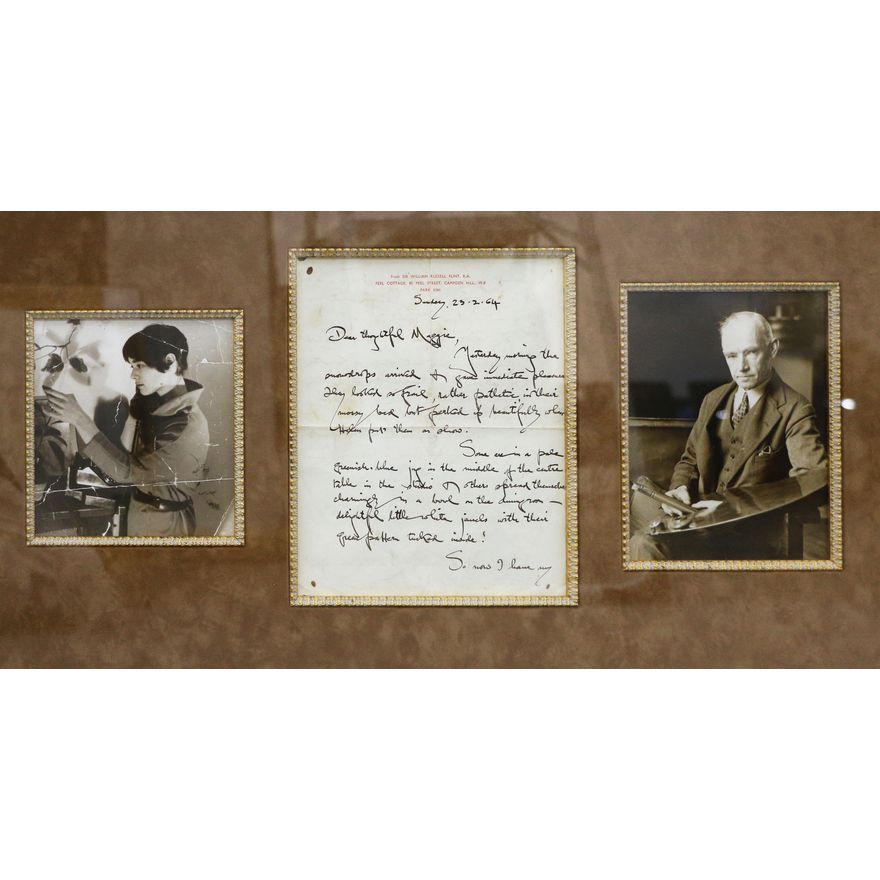 From SIR WILLIAM RUSSELL FLINT, R.A.
PEEL COTTAGE, 80 PEEL STREET, CAMPDEN HILL, W.8
PARK
Sunday, 23-2-64
Dear thoughtful Maggie,
Yesterday morning the
snowdrops arrived & gave immediate pleasure
They looked so frail, rather pathetic, in their
mossy bed but perked up beautifully when
put them on show.
Some are in a pale
greenish-blue jug in the middle of the centre
table in the studio & others spread themselves
charmingly in a bowl in the dining room —
delightful little white jewels with their
green pattern tucked inside!
So now I have my